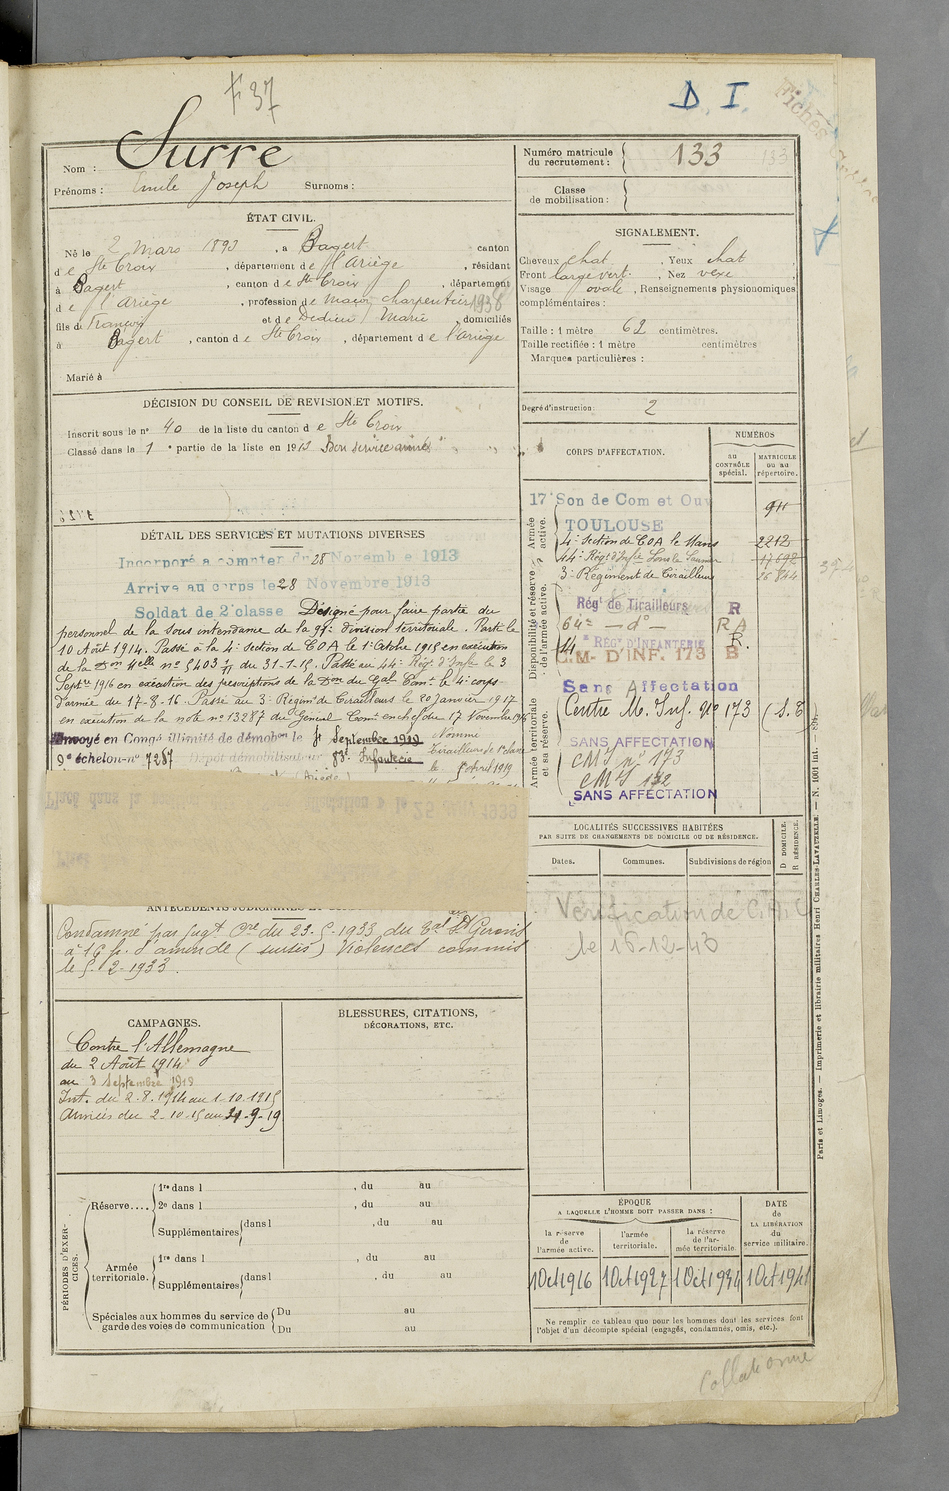 F 37
D I
Fiches
Nom : Surre
Prénoms : Emile Joseph Surnoms :
Numéro matricule du recrutement : 133
Classe de mobilisation :
ÉTAT CIVIL.
Né le 2 Mars 1893, à Bagert canton
de Ste Croix, département de l'Ariège, résidant
à Bagert, canton de Ste Croix, département
de l'Ariège, profession de maçon charpentier 1938
fils de François et de Dedieu Marie domiciliés
à Bagert, canton de Ste Croix, département de l'Ariège
Marié à
SIGNALEMENT.
Cheveux chat., Yeux chat
Front large vert., Nez vexe
Visage ovale, Renseignements physionomiques
complémentaires :
Taille : 1 mètre 62 centimètres.
Taille rectifiée : 1 mètre centimètres
Marques particulières :
Degré d'instruction : 2
DÉCISION DU CONSEIL DE REVISION ET MOTIFS.
Inscrit sous le n° 40 de la liste du canton de Ste Croix
Classé dans le 1e partie de la liste en 1913 Bon service armé
DÉTAIL DES SERVICES ET MUTATIONS DIVERSES
Incorporé à compter du 28 Novembre 1913
Arrivé au corps le 28 Novembre 1913
Soldat de 2e classe Désigné pour faire partie du
personnel de la sous intendance de la division territoriale. Parti le
10 Août 1914. Passé à la 4e section de COA le 1er Octobre 1915 en exécution
de la Don Melle n° 5403 du 31-1-15. Passé au 44e Régt d'Infie le 3
Septre 1916 en exécution des prescriptions de la Don du Gal Comt le 4e corps
d'armée du 17-8-16. Passé au 3e Régimt de Tirailleurs le 20 Janvier 1917
en exécution de la note n° 13287 du Général Comt en chef du 17 Novembre 1916
Envoyé en Congé illimité de démobon le Septembre 1919
9e échelon n° 7287 Dépôt démobilisateur 83e Infanterie
Nommé
Tirailleur de 1e classe
le 5 avril 1919
CORPS D'AFFECTATION.
NUMÉROS
au CONTRÔLE spécial.
MATRICULE ou au répertoire.
Armée active.
17e Son de Com et Ouv
TOULOUSE
4e Section de COA le Mans 2212
44e Régt d'Infie Lons le Saunier 17692
3e Régiment de Tirailleurs 26 844
Disponibilité et réserve de l'armée active.
Rég' de Tirailleurs R
64e — do — R A
14e RÉGt D'INFANTERIE R.
C.M- D'INF. 173 B
Sans Affectation
Armée territoriale et sa réserve.
Centre M. Inf. N° 173 (S.E)
SANS AFFECTATION
CMI n° 173
CMI 172
SANS AFFECTATION
LOCALITÉS SUCCESSIVES HABITÉES
PAR SUITE DE CHANGEMENTS DE DOMICILE OU DE RÉSIDENCE.
Dates. Communes. Subdivisions de région
D DOMICILE. R RÉSIDENCE.
Vérification de
le 16-12-43
Condamné par jugt du 23.5.1933 du Bal St Girons
à 16 f. d'amende (sursis) Violences commis
le 5-2-1933.
CAMPAGNES.
Contre l'Allemagne
du 2 Août 1914
au 3 Septembre 1919
Int. du 2.8.1914 au 1-10-1915
Armées du 2-10-15 au 9-19
BLESSURES, CITATIONS,
DÉCORATIONS, ETC.
PÉRIODES D'EXERCICES.
Réserve.... 1re dans l , du au
2e dans l , du au
Supplémentaires dans l , du au
Armée territoriale. 1re dans l , du au
Supplémentaires dans l , du au
Spéciales aux hommes du service de garde des voies de communication Du au
Du au
ÉPOQUE
A LAQUELLE L'HOMME DOIT PASSER DANS :
la réserve de l'armée active.
l'armée territoriale.
la réserve de l'armée territoriale.
DATE de LA LIBÉRATION du service militaire.
1 Oct 1916 1 Oct 1927 1 Oct 1934 1 Oct 1941
Ne remplir ce tableau que pour les hommes dont les services font
l'objet d'un décompte spécial (engagés, condamnés, omis, etc.).
Paris et Limoges. — Imprimerie et librairie militaires Henri CHARLES-LAVAUZELLE. — N. 1001 int.
Collationné